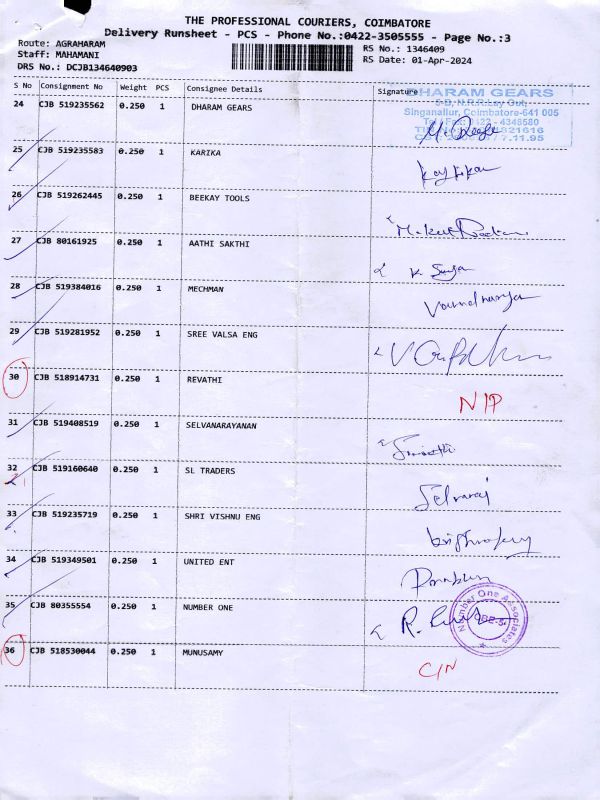 THE PROFESSIONAL COURIERS, COIMBATORE
Delivery Runsheet - PCS - Phone No.:0422-3505555 - Page No.:3
Route: AGRAHARAM RS No.: 1346409
Staff: MAHAMANI RS Date: 01-Apr-2024
DRS No.: DCJB134640903
S No Consignment No Weight PCS Consignee Details Signature
DHARAM GEARS
24 CJB 519235562 0.250 1 DHARAM GEARS
Singanallur, Coimbatore-641 005
25 CJB 519235583 0.250 1 KARIKA
26 CJB 519262445 0.250 1 BEEKAY TOOLS
27 CJB 80161925 0.250 1 AATHI SAKTHI
28 CJB 519384016 0.250 1 MECHMAN
29 CJB 519281952 0.250 1 SREE VALSA ENG
30 CJB 518914731 0.250 1 REVATHI
N/P
31 CJB 519408519 0.250 1 SELVANARAYANAN
32 CJB 519160640 0.250 1 SL TRADERS
Selvaraj
33 CJB 519235719 0.250 1 SHRI VISHNU ENG
34 CJB 519349501 0.250 1 UNITED ENT
35 CJB 80355554 0.250 1 NUMBER ONE
Number One Associates
36 CJB 518530044 0.250 1 MUNUSAMY
C/N